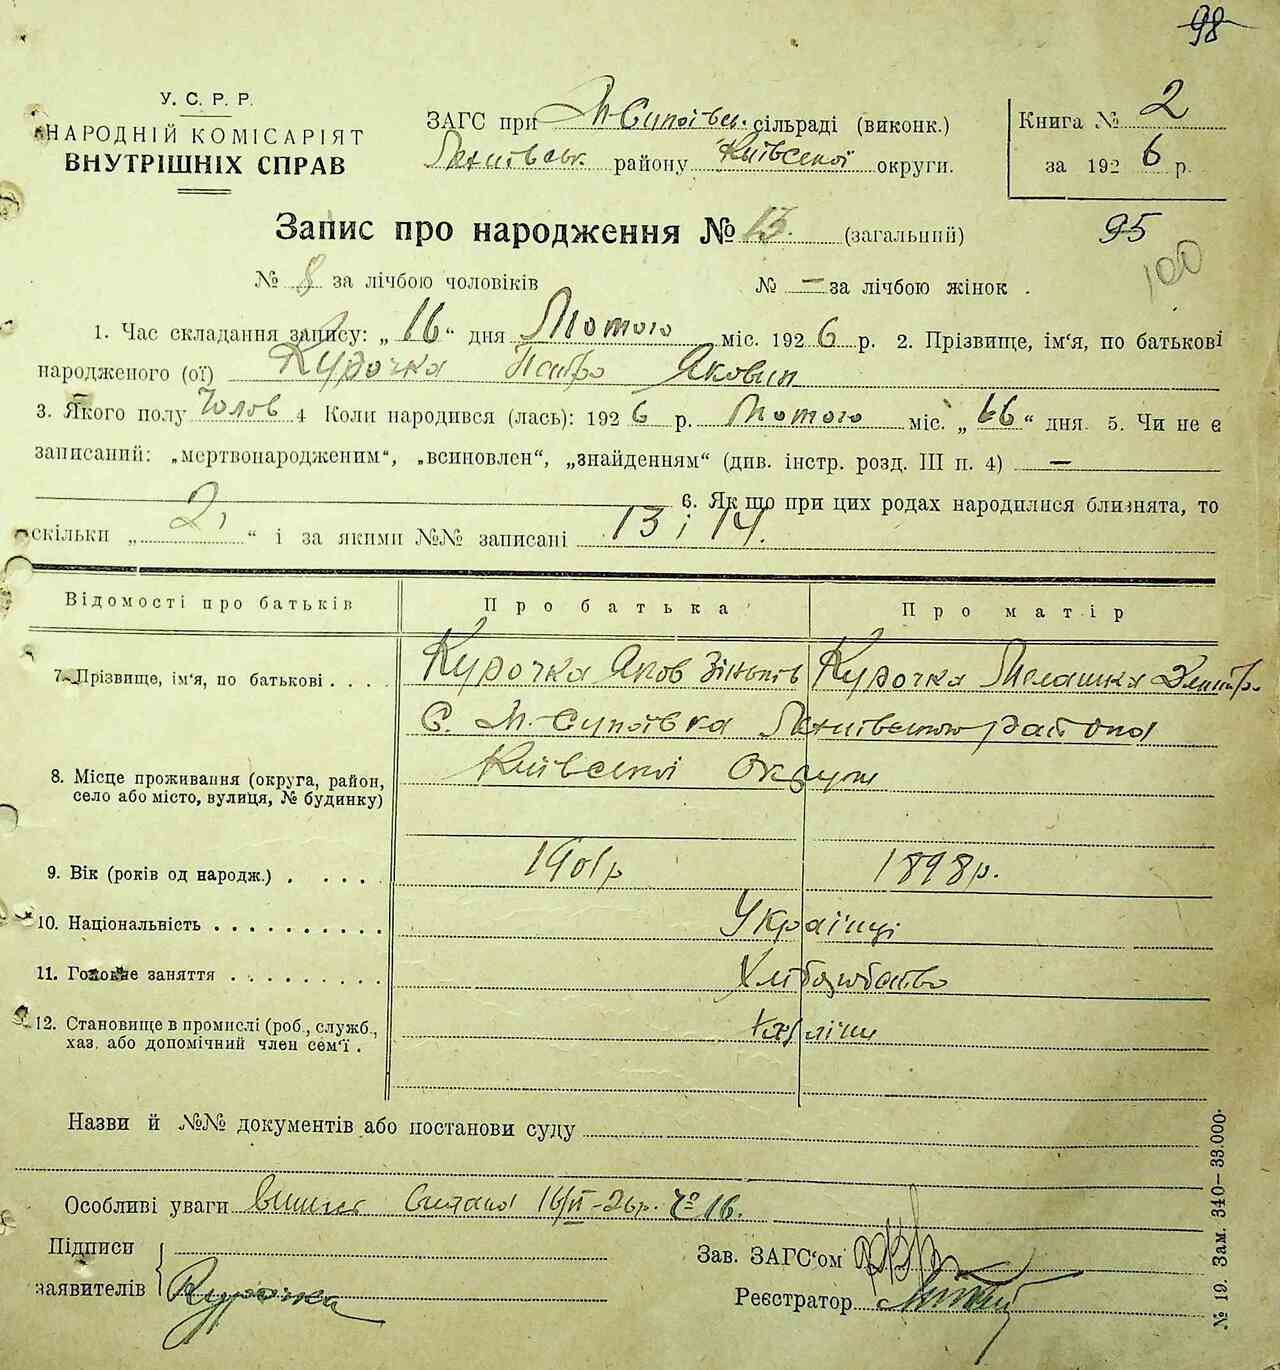 98
У. С. Р. Р.
НАРОДНІЙ КОМІСАРІЯТ
ВНУТРІШНІХ СПРАВ
ЗАГС при М-Супоївск. сільраді (виконк.)
району Київської округи.
Книга № 2
за 1926 р.
Запис про народження № 13. (загальний)
95
100
№ 8 за лічбою чоловіків № — за лічбою жінок .
1. Час складання запису: „ 16 “ дня Лютого міс. 1926 р. 2. Прізвище, ім‘я, по батькові
народженого (ої) Курочка Петро Яковин
3. Якого полу Чолов 4 Коли народився (лась): 1926 р. Лютого міс. „ 16 “ дня. 5. Чи не є
записаний: „мертвонародженим“, „всиновлен“, „знайденням“ (див. інстр. розд. III п. 4) —
6. Як що при цих родах народилися близнята, то
скільки „ 2, “ і за якими №№ записані 13 і 14.
Відомості про батьків Про батька Про матір
7. Прізвище, ім‘я, по батькові . . . . Курочка Яков Зіньків Курочка Мелашка Дмитр.
С. М-Супоївка району
8. Місце проживання (округа, район, Київської Округи
село або місто, вулиця, № будинку)
9. Вік (років од народж.) . . . . . 1901р 1898р.
10. Національність . . . . . . . . . . Українці
11. Головне заняття . . . . . . . . . Хліборобство
12. Становище в промислі (роб., служб.,
хаз. або допомічний член сем‘ї .
Назви й №№ документів або постанови суду
Особливі уваги 16/II-26р. № 16.
Підписи
заявителів Курочка
Зав. ЗАГС‘ом
Реєстратор
№ 19. Зам. 340—33.000.